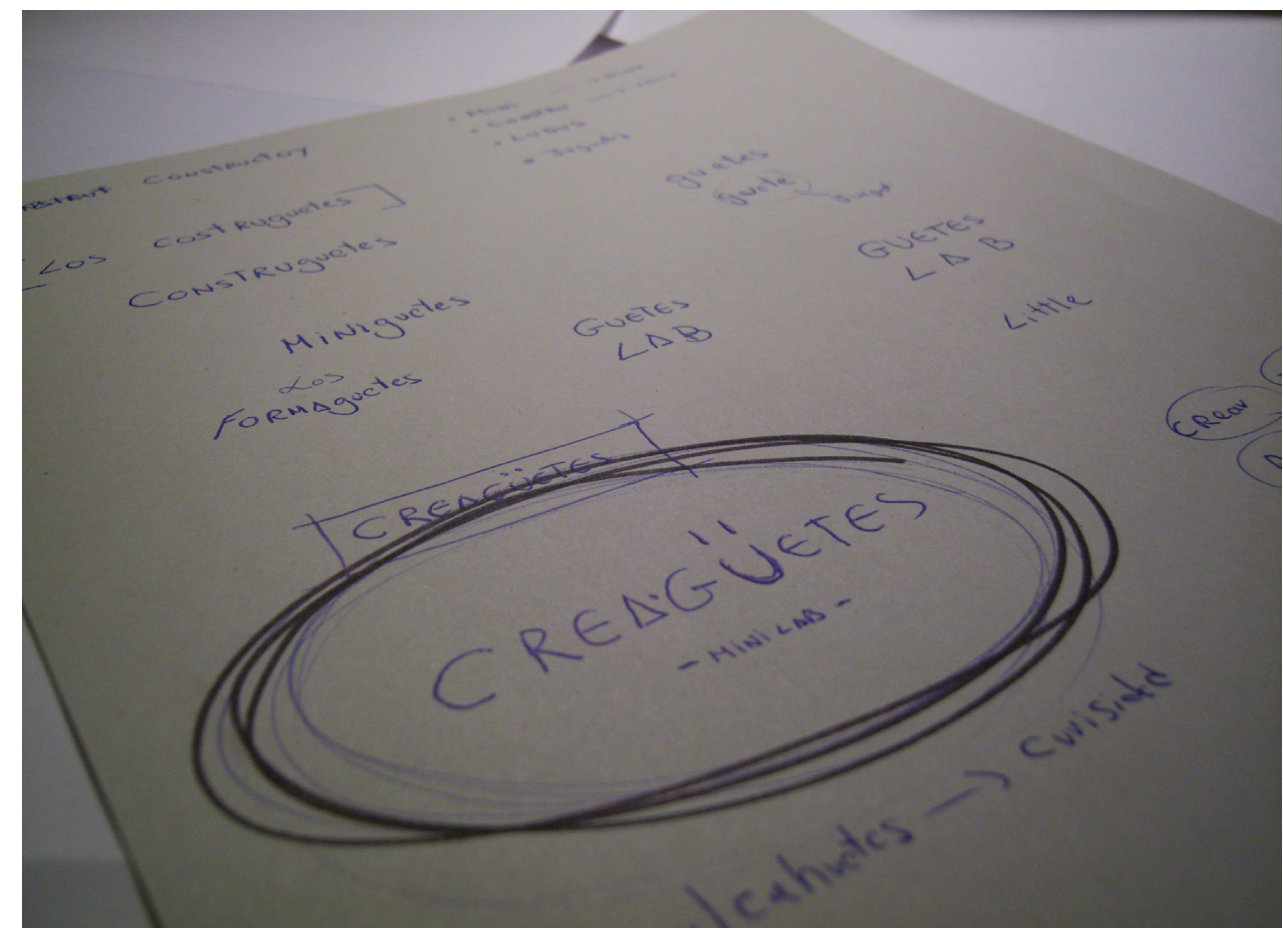 Constructoy
Los CostRuguetes
CONSTRUguetes
MiNiguetes
Los
FORMAguetes
• Mini
• Ludus
• Juguetes
guetes
guete
GUETES
LAB
GUETES
LAB
Little
CReaR
CREAGÜETES
CREAGÜETES
- MINI LAB -